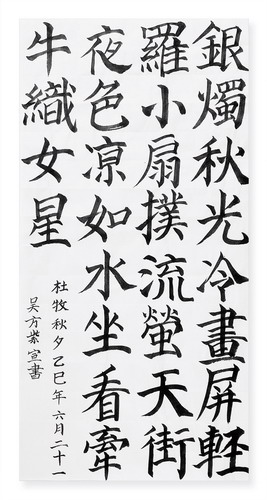 銀燭秋光冷畫屏輕
羅小扇撲流螢天街
夜色凉如水坐看牽
牛織女星
杜牧秋夕乙巳年六月二十一
吴方紫宣書